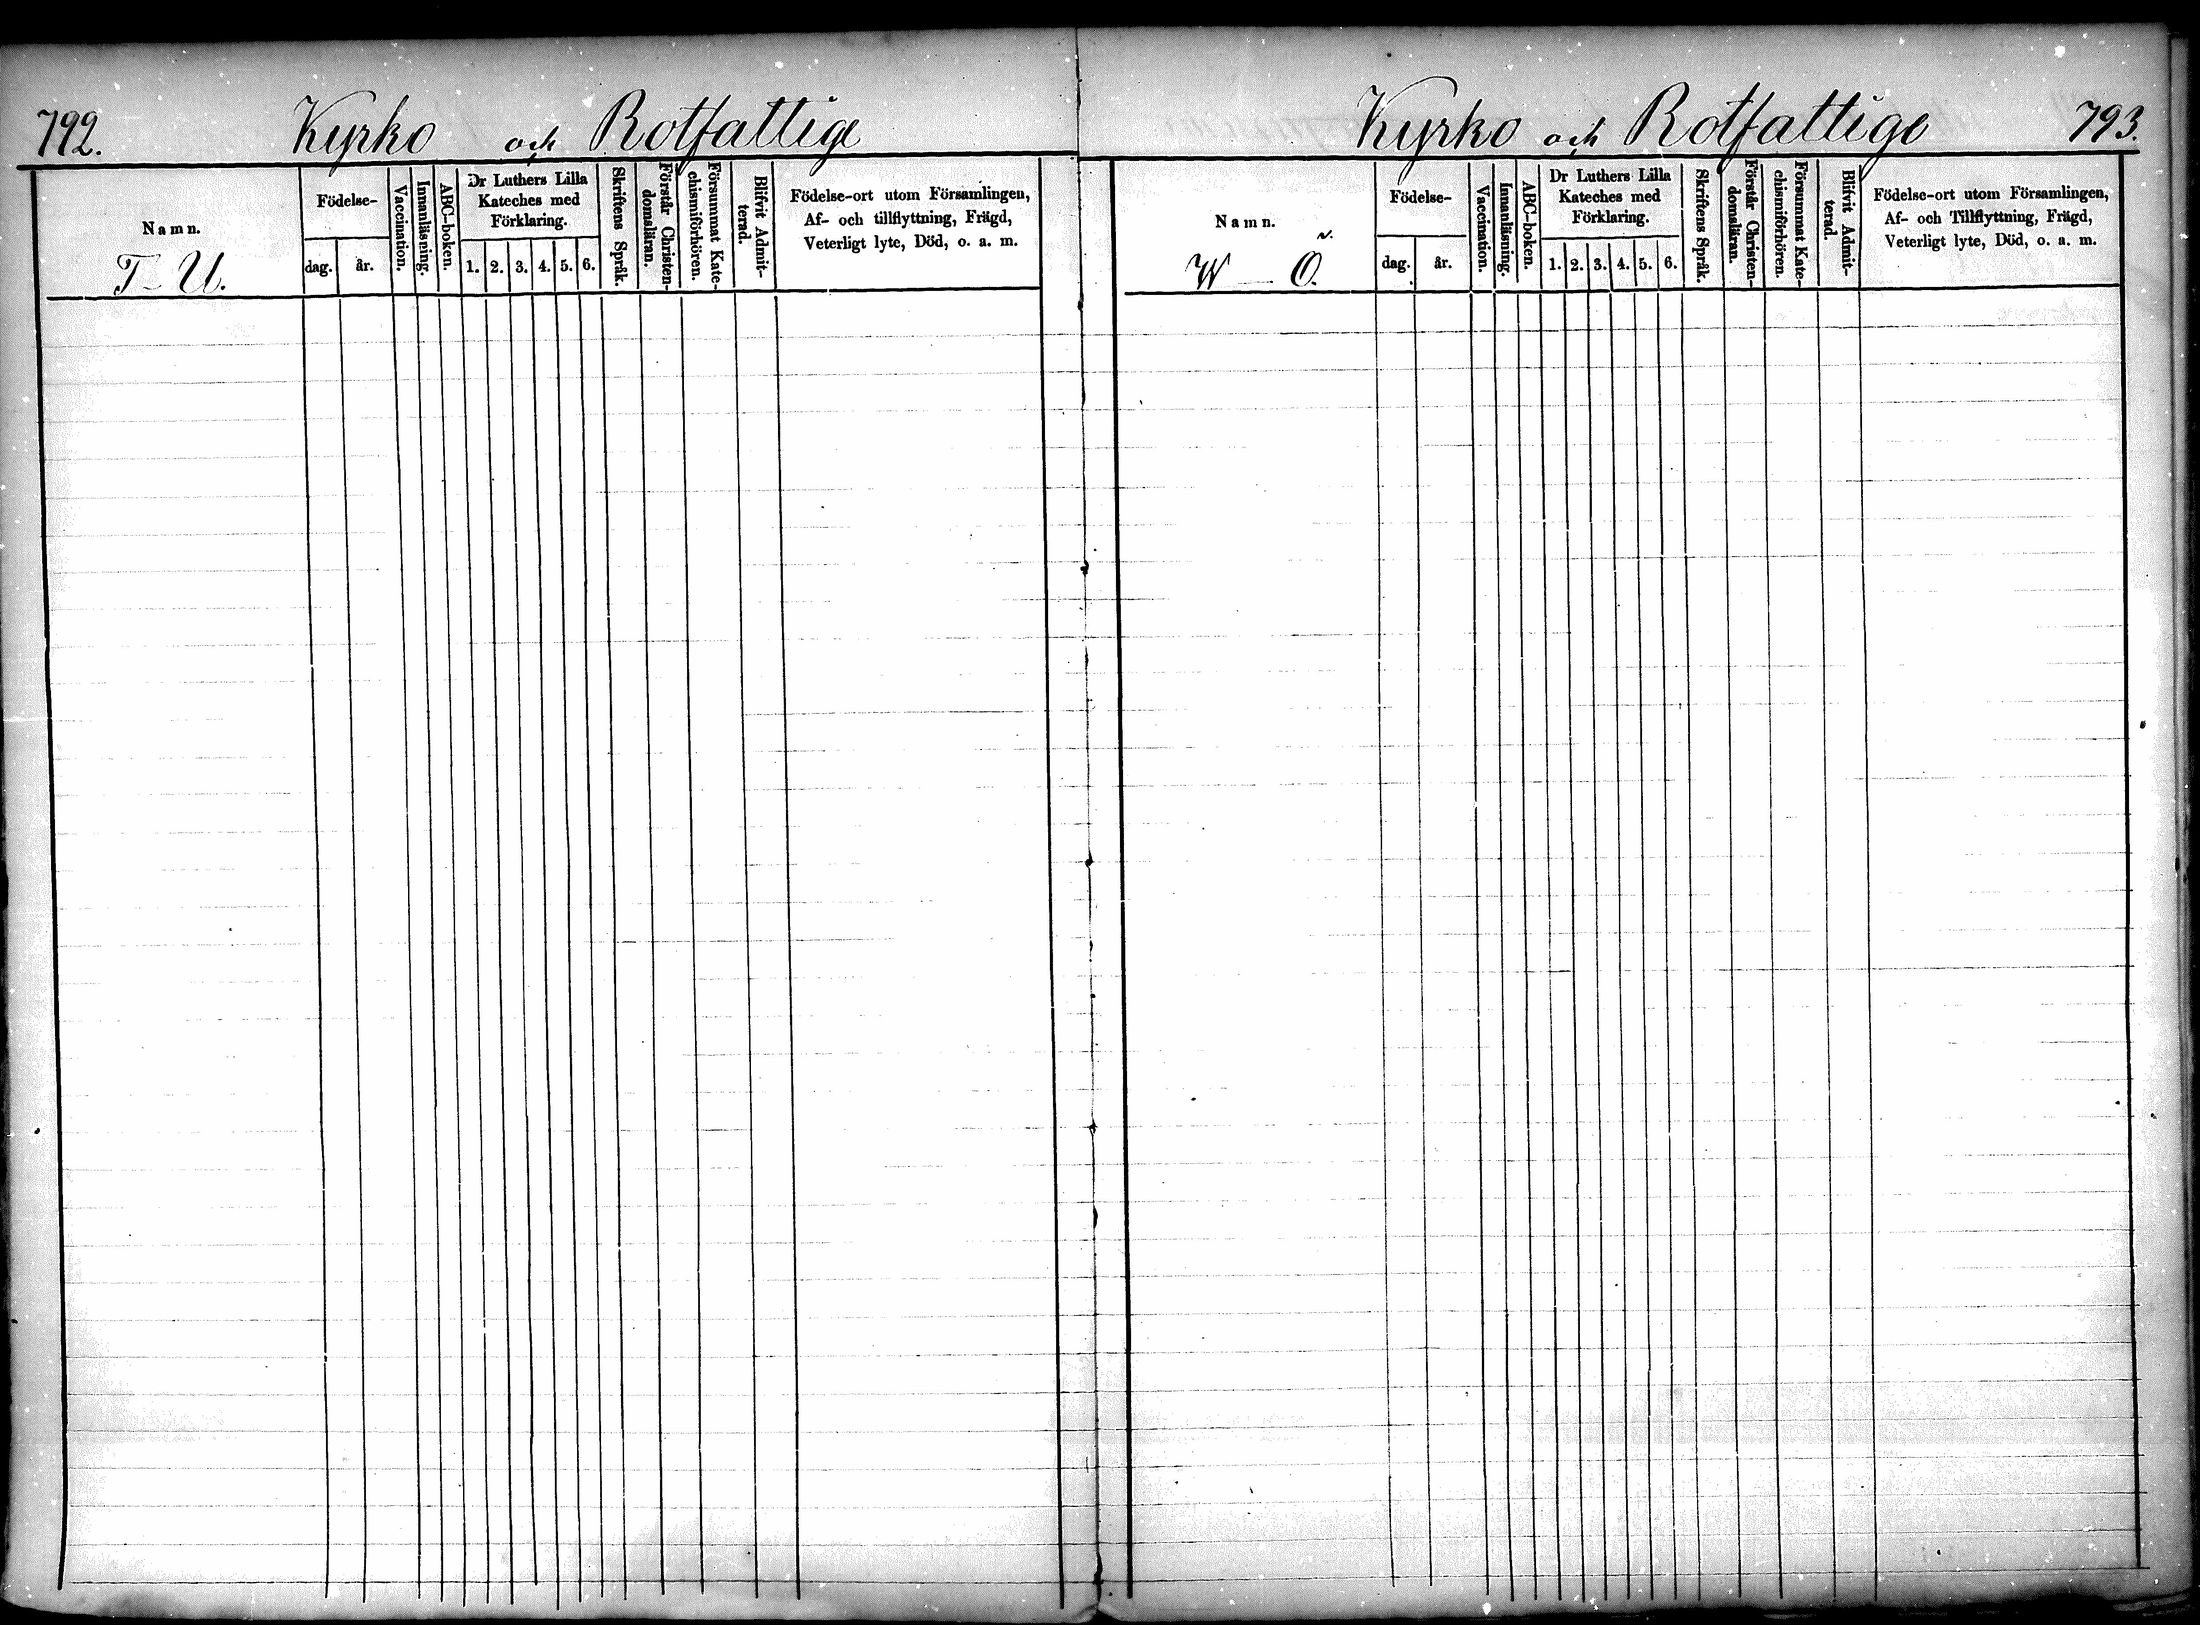 792. Kyrko och Rotfattige
Namn.
T – U.
Födelse-
dag. år.
Vaccination.
Innanläsning.
ABC-boken.
Dr Luthers Lilla
Kateches med
Förklaring.
1. 2. 3. 4. 5. 6.
Skriftens Språk.
Förstår Christen-
domsläran.
Försummat Kate-
chismiförhören.
Blifvit Admit-
terad.
Födelse-ort utom Församlingen,
Af- och tillflyttning, Frägd,
Veterligt lyte, Död, o. a. m.
Kyrko och Rotfattige 793.
Namn.
W – Ö.
Födelse-
dag. år.
Vaccination.
Innanläsning.
ABC-boken.
Dr Luthers Lilla
Kateches med
Förklaring.
1. 2. 3. 4. 5. 6.
Skriftens Språk.
Förstår Christen-
domsläran.
Försummat Kate-
chismiförhören.
Blifvit Admit-
terad.
Födelse-ort utom Församlingen,
Af- och Tillflyttning, Frägd,
Veterligt lyte, Död, o. a. m.